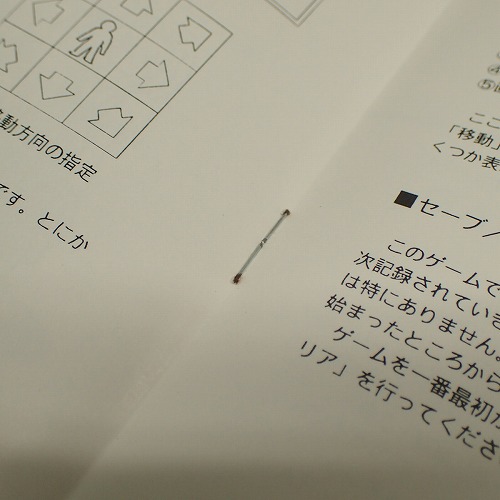 移動方向の指定
です。とにか
④
⑤
ここ
「移動」
くつか表
■セーブ／
このゲームで
次記録されていき
は特にありません。
始まったところから
ゲームを一番最初か
リア」を行ってくださ